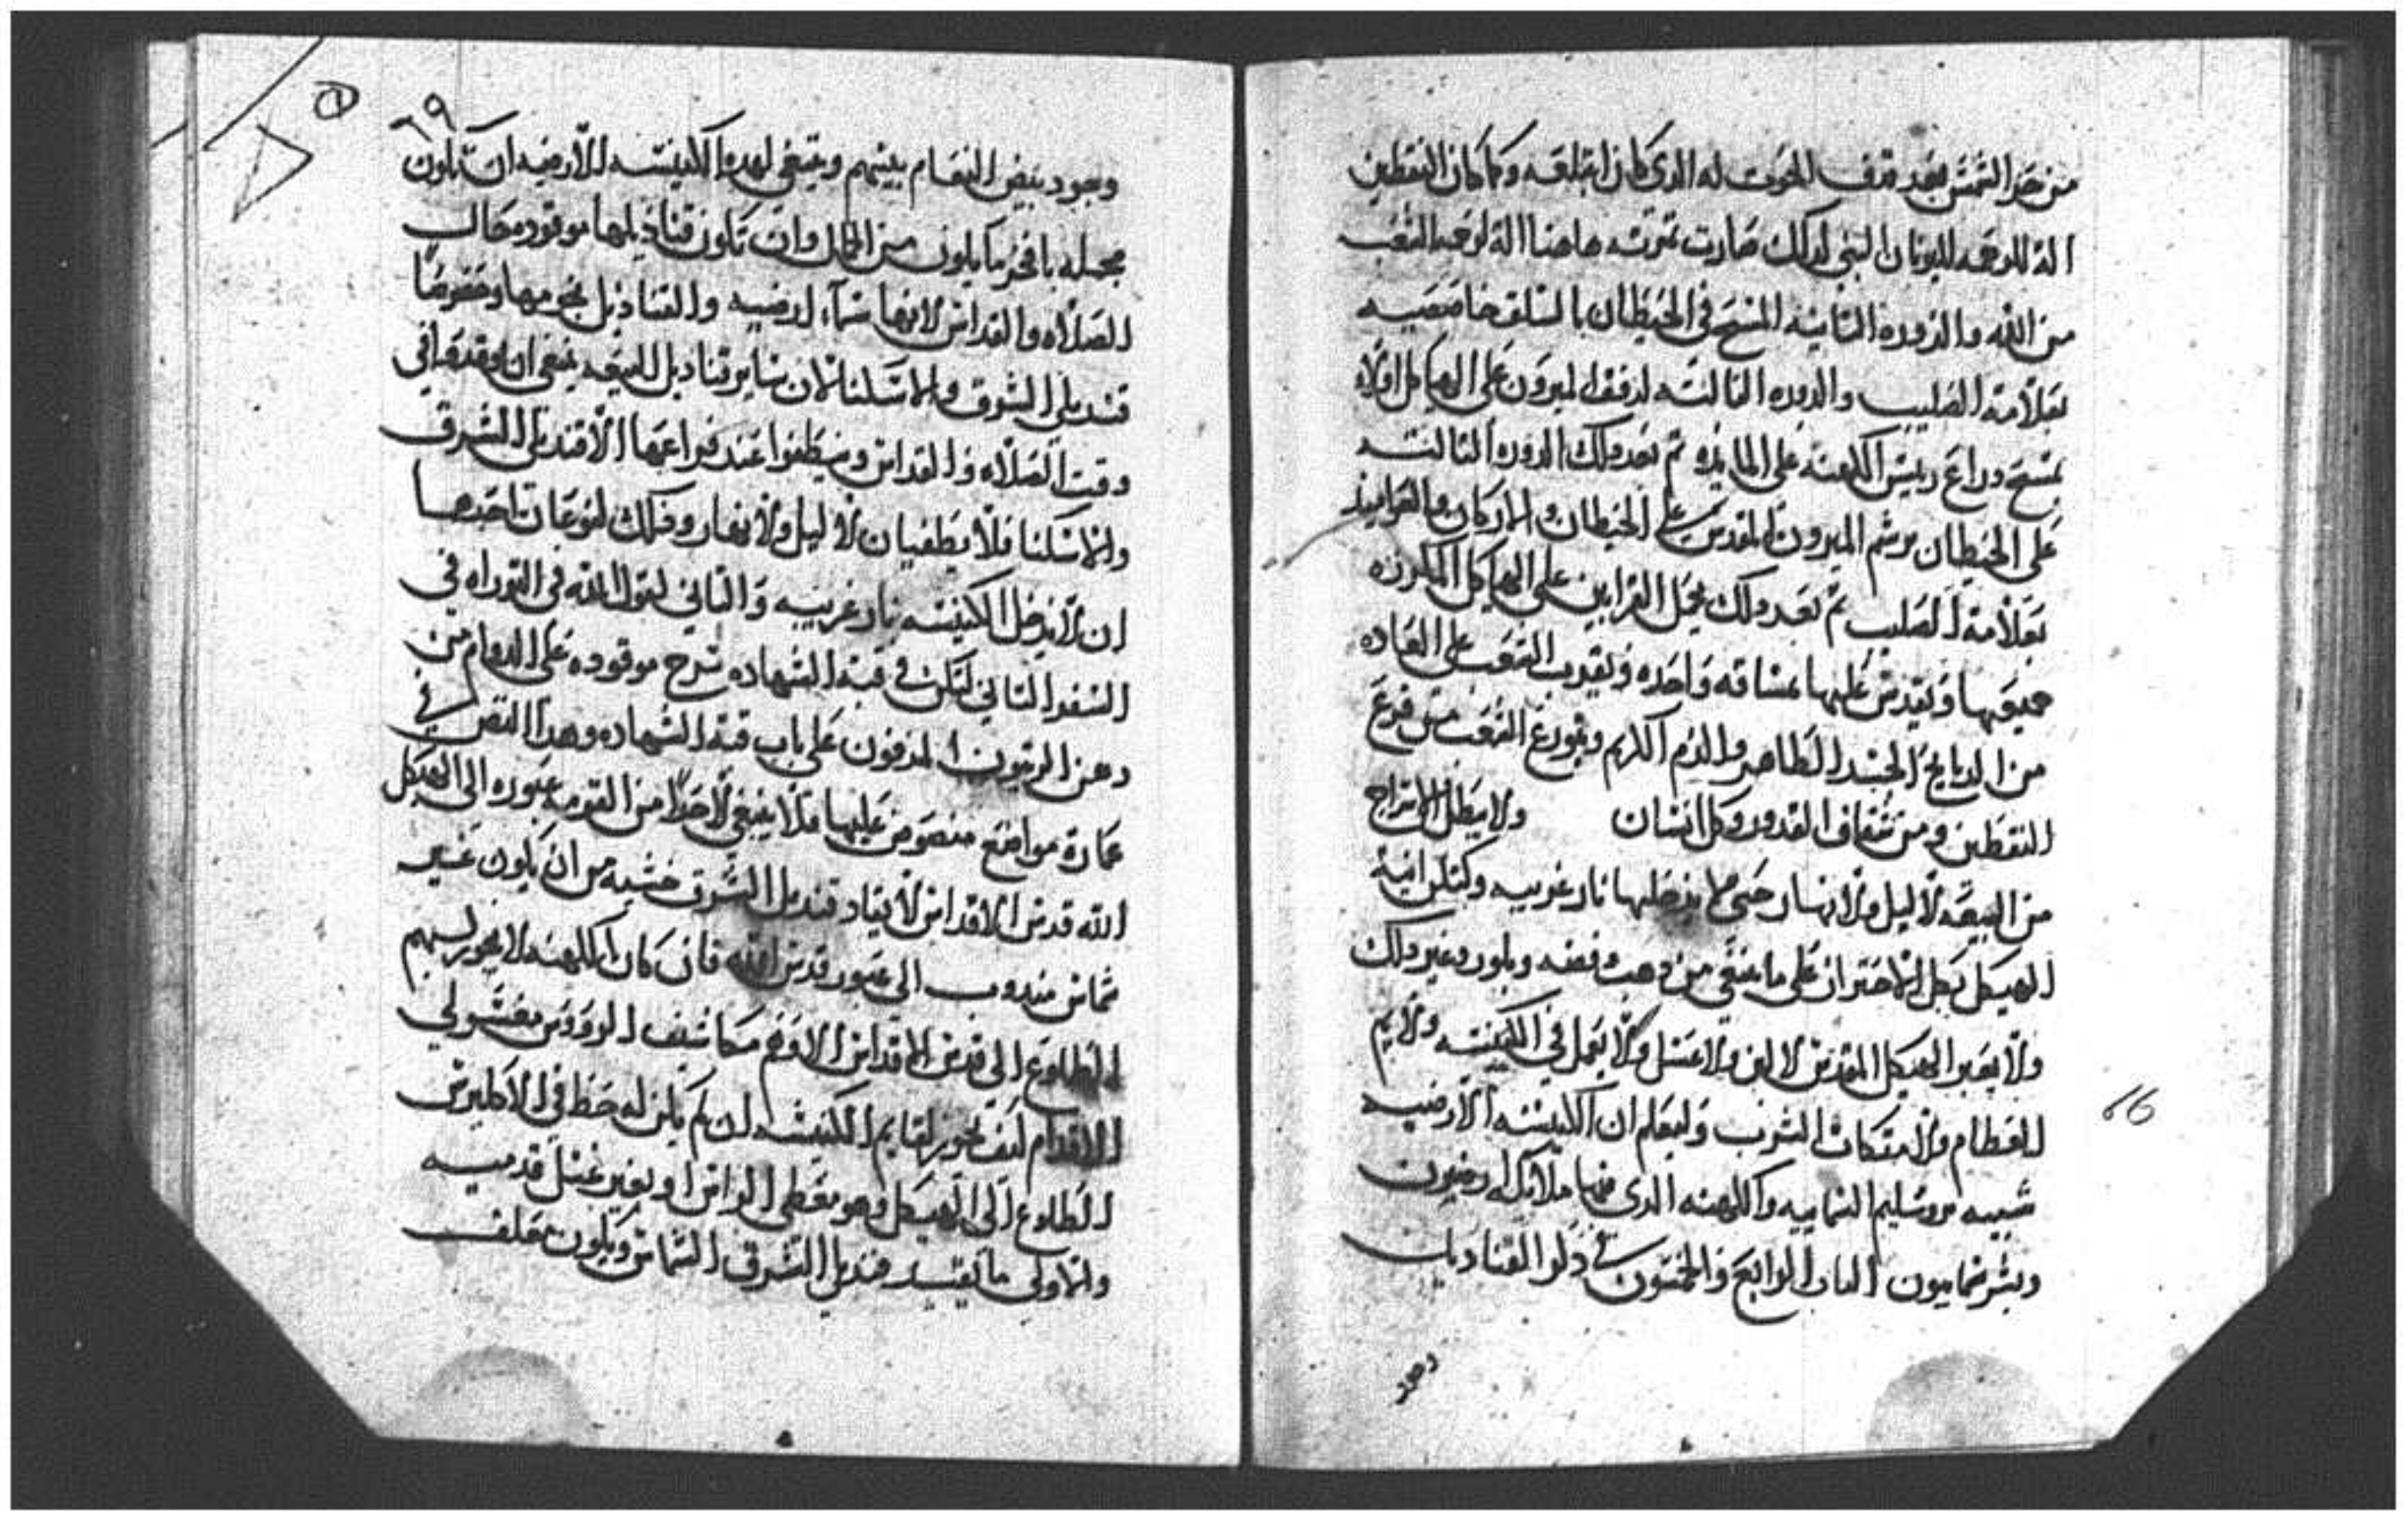 من حر الشمس بعد قدف الحوت له الدى كان ابتلعه وكما كان اليقطين
الة للرحمه ليونان النبي لدلك صارت تمرته هاهنا الة لرحمه الشعب
من الله والدوره التانيه المسح في الحيطان بالسلق خاصصيه
بعلامة الصليب والدوره التالته لدفق الميرون على الهياكل اولاً
تمسح دراع رييس الكهنه على المايده تم بعد دلك الدوره التالته
على الحيطان برشم الميرون المقدس على الحيطان والاركان والدرابيز
بعلامة الصليب تم بعد دلك تحمل القرابين على الهياكل المكرزه
جميعها ويقدس عليها بمساقه واحده ويتقرب الشعب على العاده
من الدبايح الجسد الطاهر والدم الكريم ويتوزع الشعب من قرع
اليقطين ومن شقاف القدور وكل انسان ولا يبطل السراج
من البيعه لا ليل ولا نهار حتى لا يدخلها نار غريبه وكتكن انية
الهيكل بكل الاحتراز على ما ينبغي من دهب وفضه وبلور وغير دلك
ولا يعبر الهيكل المقدس لا لبن ولا عسل ولا يعمل في الكنيسه ولايم
للطعام ولا متكات الشرب وليعلم ان الكنيسه الارضيه
شبيه يروشليم السماييه والكهنه الدى فيها ملايكه ارضيون
وبشر سماييون الباب الرابع والخمسون في دكر القناديل
وجود
٢٦
٦٩
وجود بيض النعام بينهم وينبغي لهده الكنيسه الارضيه ان تكون
مجمله بافخر ما يكون من الجمال وان تكون قناديلها موقوده حال
الصلاه والقداس لانها سماء ارضيه والقناديل نجومها وخصوصًا
قنديلي الشرق والاسكنا لان ساير قناديل البيعه ينبغي ان توقد في
وقت الصلاه والقداس وينطفوا عند فراغها الا قنديلي الشرق
والاسكنا فلا يطفيان لا ليل ولا نهار ودلك لنوعان احدهما
ان لا يدخل الكنيسه نار غريبه والتاني لقول الله في التوراه في
السفر التاني لتكن في قبة الشهاده سرج موقوده على الدوام من
دهن الزيتون المدفون على باب قبة الشهاده وهدا النص في
عدة مواضع منصوص عليها فلا ينبغي لاحداً من القومه عبوره الى الهيكل
الله قدس الاقداس لايقاد قنديل الشرق خشيه من ان يكون غير
شماس مندوب الى عبور قدس الله فان كان الكهنه لا يجوز لهم
الطلوع الى قدس الاقداس الا وهم مكاشيف الرووس مغسولي
الاقدام كيف يجوز لقايم الكنيسه ان لم يكن له حظ في الاكليرس
الطلوع الى الهيكل وهو مغطى الراس او بغير غسل قدميه
والاولى ما يقيد قنديل الشرق الشماس ويكون مقلف